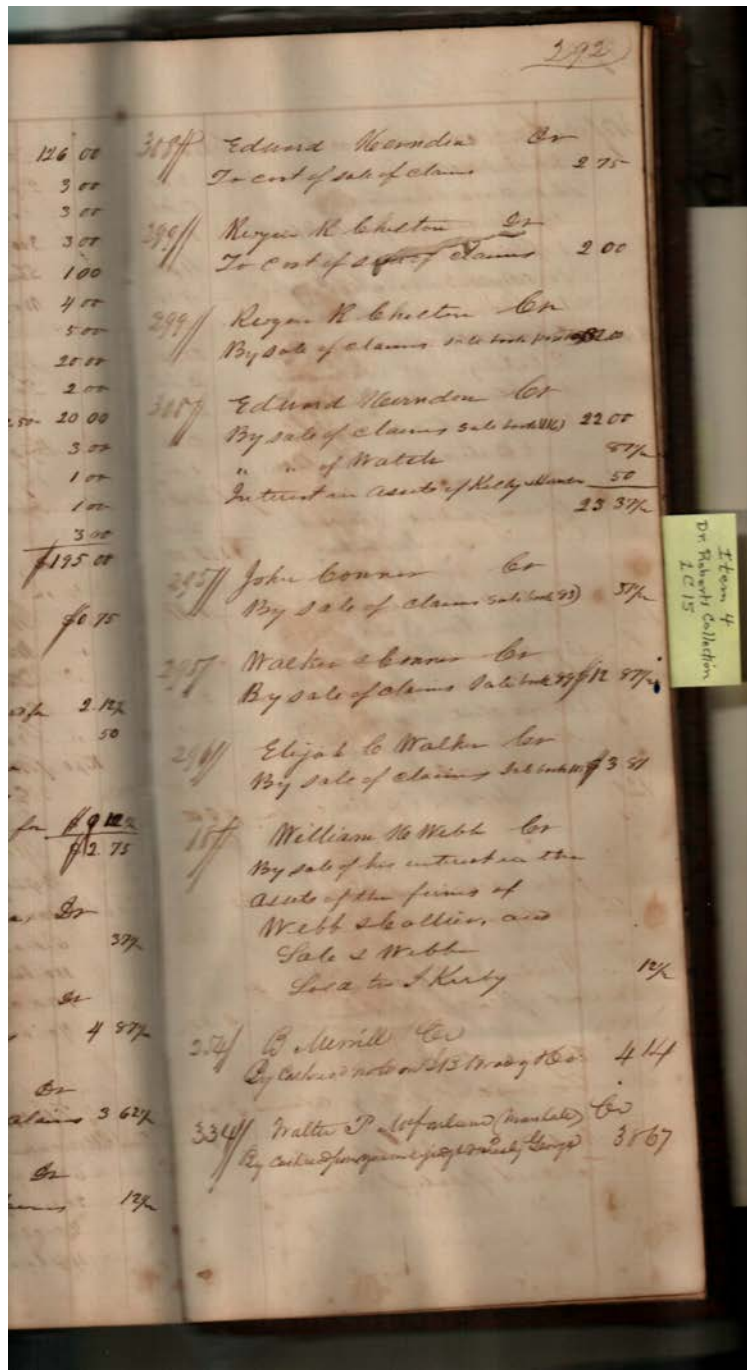 292
126 00
3 00
3 00
3 00
1 00
4 00
5 00
20 00
2 00
20 00
3 00
1 00
1 00
3 00
$195 00
$0.75
2.12½
50
for $9 12½
$2.75
Dr
37½
Dr
4 87½
Dr
Claims 3 62½
Dr
12½
308 Edward Herndon Cr
To cost of sale of claims 2 75
299 R Chilton Dr
To Cost of claims 2 00
299 R Chilton Cr
By sale of claims sale book
308 Edward Herndon Cr
By sale of claims sale book 22 00
" " of Watch 87½
Interest in assets of 50
23 37½
295 John Conner Cr
By sale of claims sale book 93) 37½
295 Walker & Conner Cr
By sale of claims sale book $12 87½
296 Elijah C Walker Cr
By sale of claims sale book $3 81
William H Webb Cr
By sale of his interest in the
assets of the firms of
Webb & Collier, and
Sale & Webb
Sold to J Kirby 12½
254 B Merrill Cr
By Cash on note on 4 14
334 Walter P McFarland Cr
By Cash George 38 67
Item 4
Dr. Roberts Collection
2C15